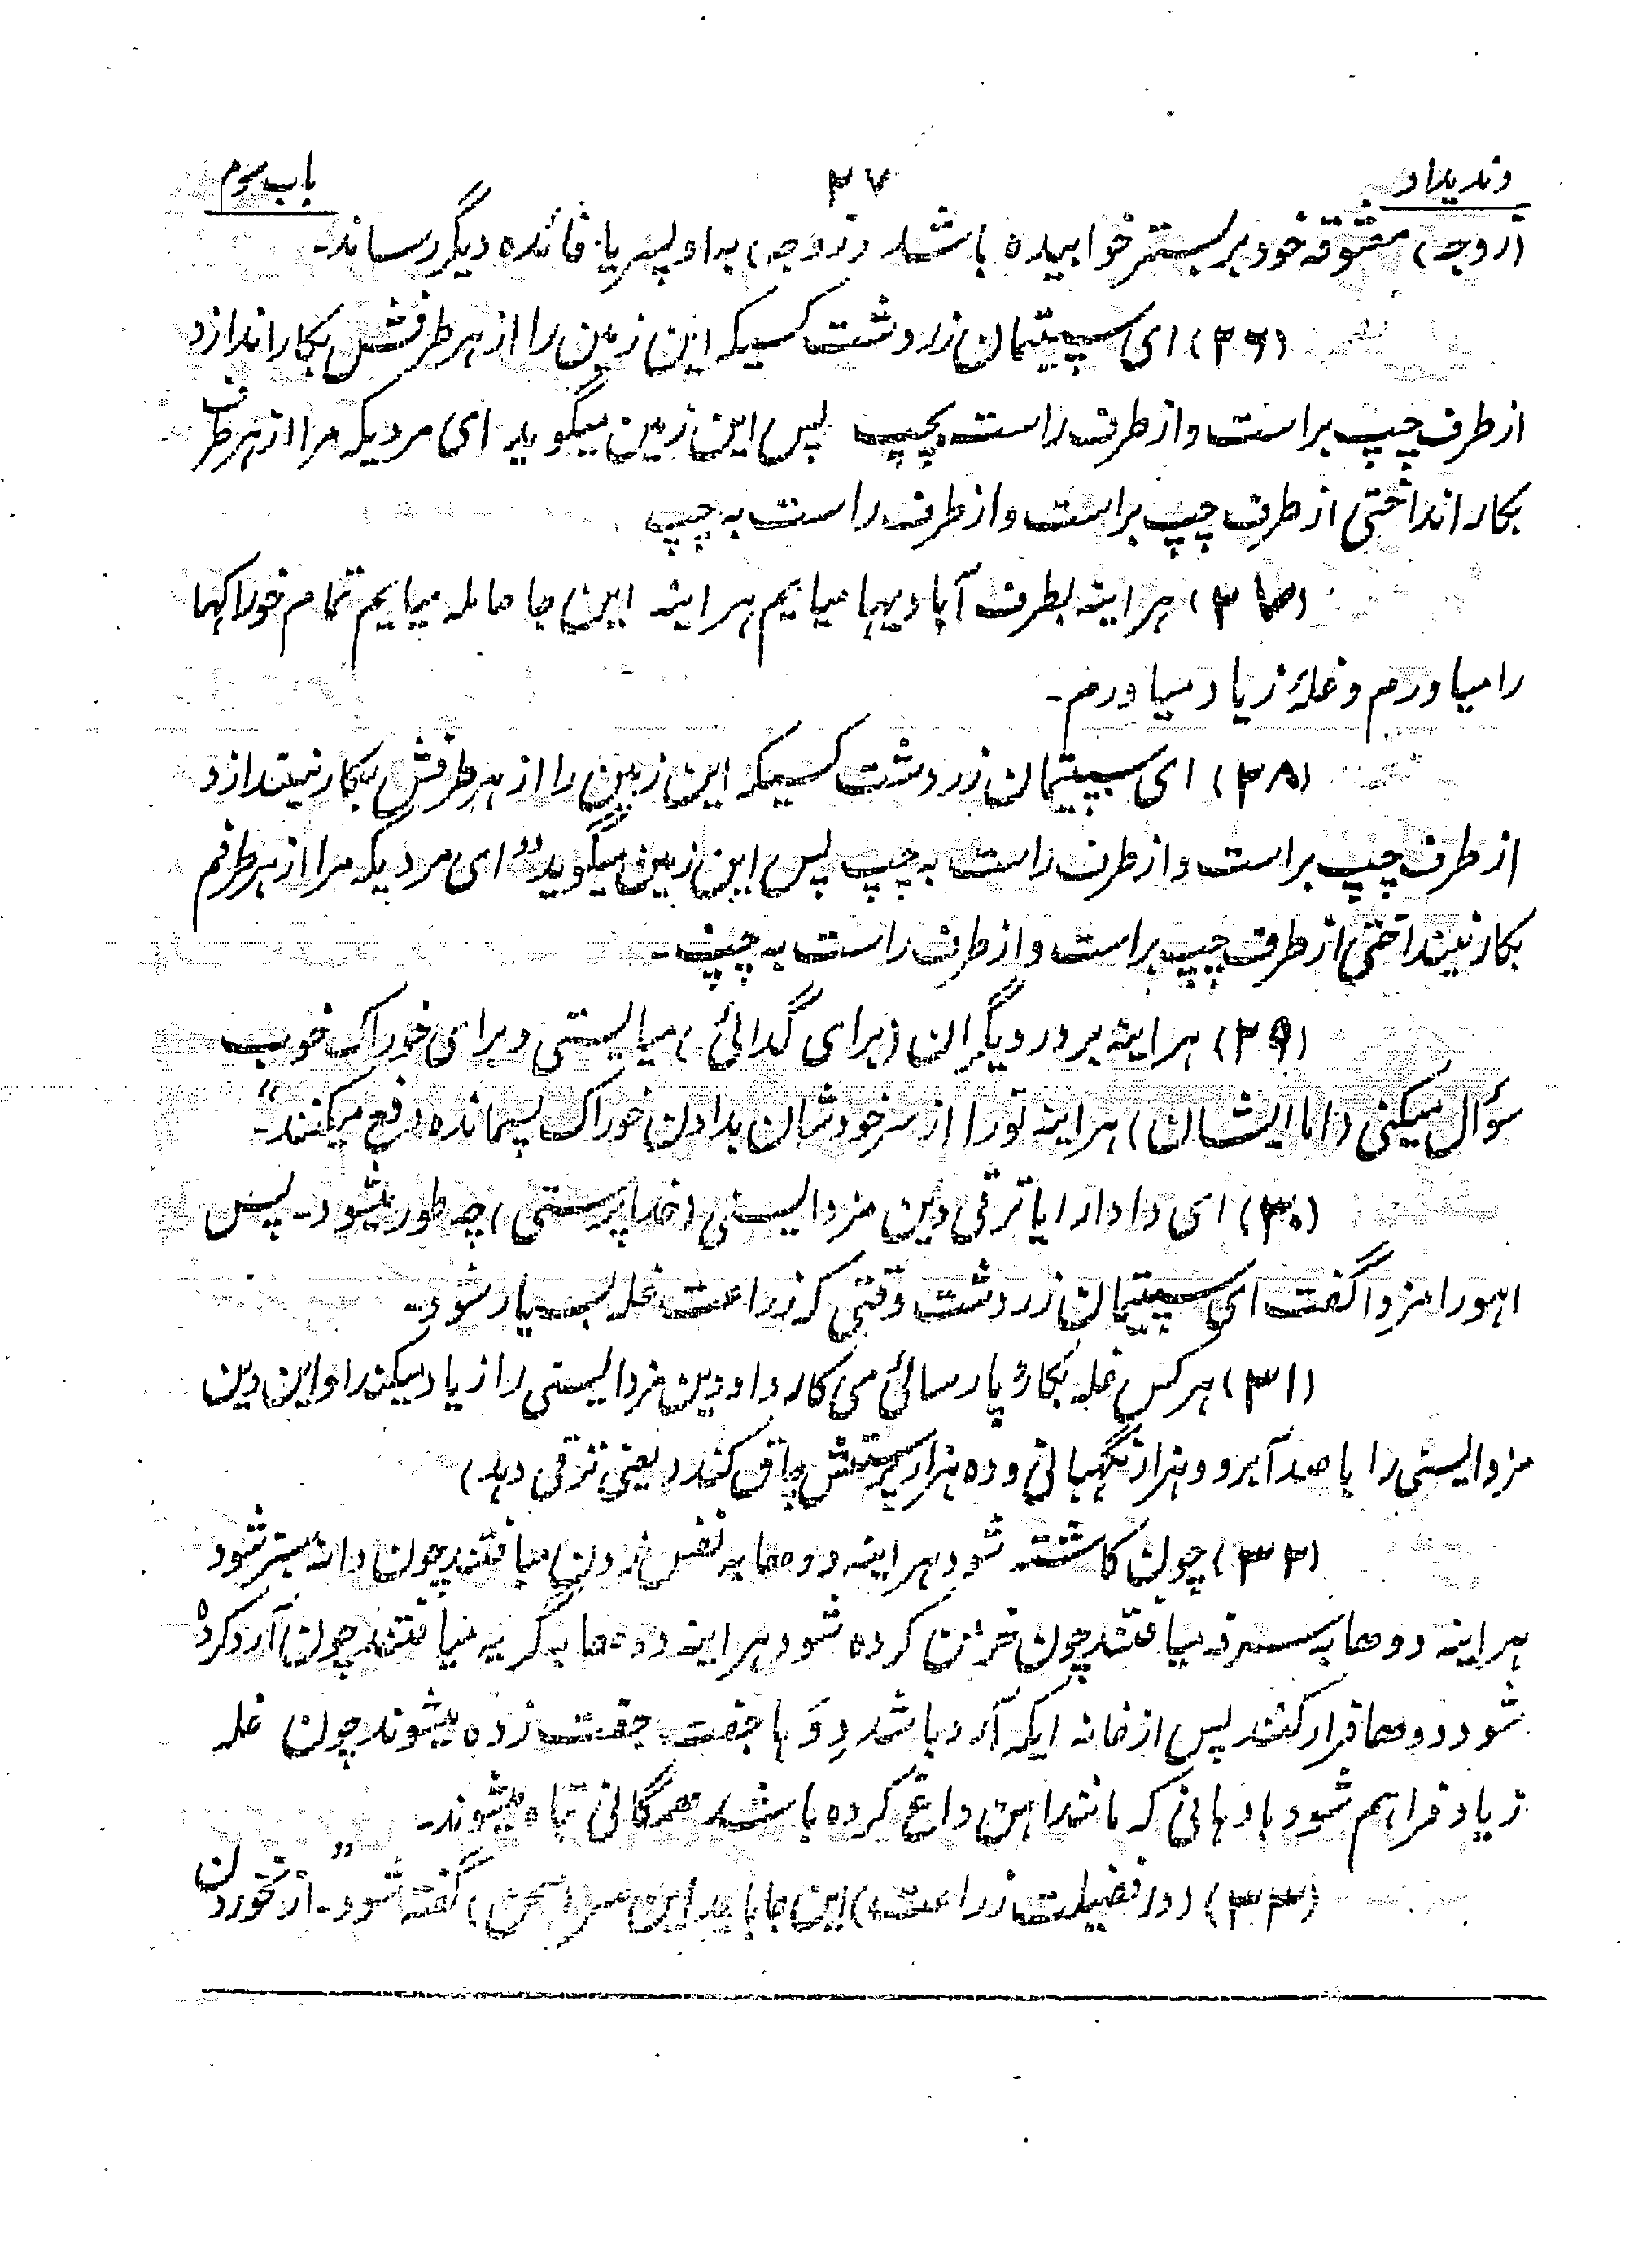 وندیداد ۲۷ باب سوم
(زوجه) معشوقه خود بر بستر خوابیده باشد (زوجه) به او پسر یا فائده دیگر رساند۔
(۲۶) ای سپیتمان زردشت کسیکه این زمین را از هر طرفش بکار اندازد
از طرف چپ براست و از طرف راست بچپ پس این زمین میگوید ای مردیکه مرا از هر طرف
بکار انداختی از طرف چپ براست و از طرف راست به چپ
هر اینه بطرف آبادیها میایم هر اینه این جا حامله میایم تمام خوراکها
را میاورم و غلهٔ زیاد میاورم۔
(۲۸) ای سپیتمان زردشت کسیکه این زمین را از هر طرفش بکار نیندازد
از طرف چپ براست و از طرف راست به چپ پس این زمین میگوید ”ای مردیکه مرا از هر طرفم
بکار نینداختی از طرف چپ براست و از طرف راست به چپ۔
(۲۹) هر اینه بر در دیگران (برای گدائی) میایستی و برای خوراک خوب
سؤال میکنی (اما ایشان) هر اینه تو را از سر خودشان بدادن خوراک پسمانده رفع میکنند“۔
(۳۰) ای دادار ایا ترقی دین مزدایسنی (خداپرستی) چه طور میشود۔ پس
اهورا مزدا گفت ای سپیتمان زردشت وقتی که زراعت غله بسیار شود۔
(۳۱) هر کس غله بکارد پارسائی می کارد او دین مزدایسنی را زیاد میکند او این دین
مزدایسنی را با صد آبرو و هزار نگهبانی و ده هزار پرستش چاق کند (یعنی ترقی دهد)
(۳۲) چون کاشته شود هر اینه دوها به نفس زدن میافتند چون دانه سبز شود
هر اینه دوها به سرفه میافتند چون خرمن کرده شود هر اینه دوها به گریه میافتند چون آرد کرده
شود دوها فرار کنند پس از خانه ایکه آرد باشد دِوَها جفت جفت زده میشوند چون غله
زیاد فراهم شود با دهانی که مانند اهن داغ کرده باشد همگانی تباه میشوند۔
(۳۳) (در فضیلت زراعت) این جا باید این سر (سخن) گفته شود۔ ”از نخوردن